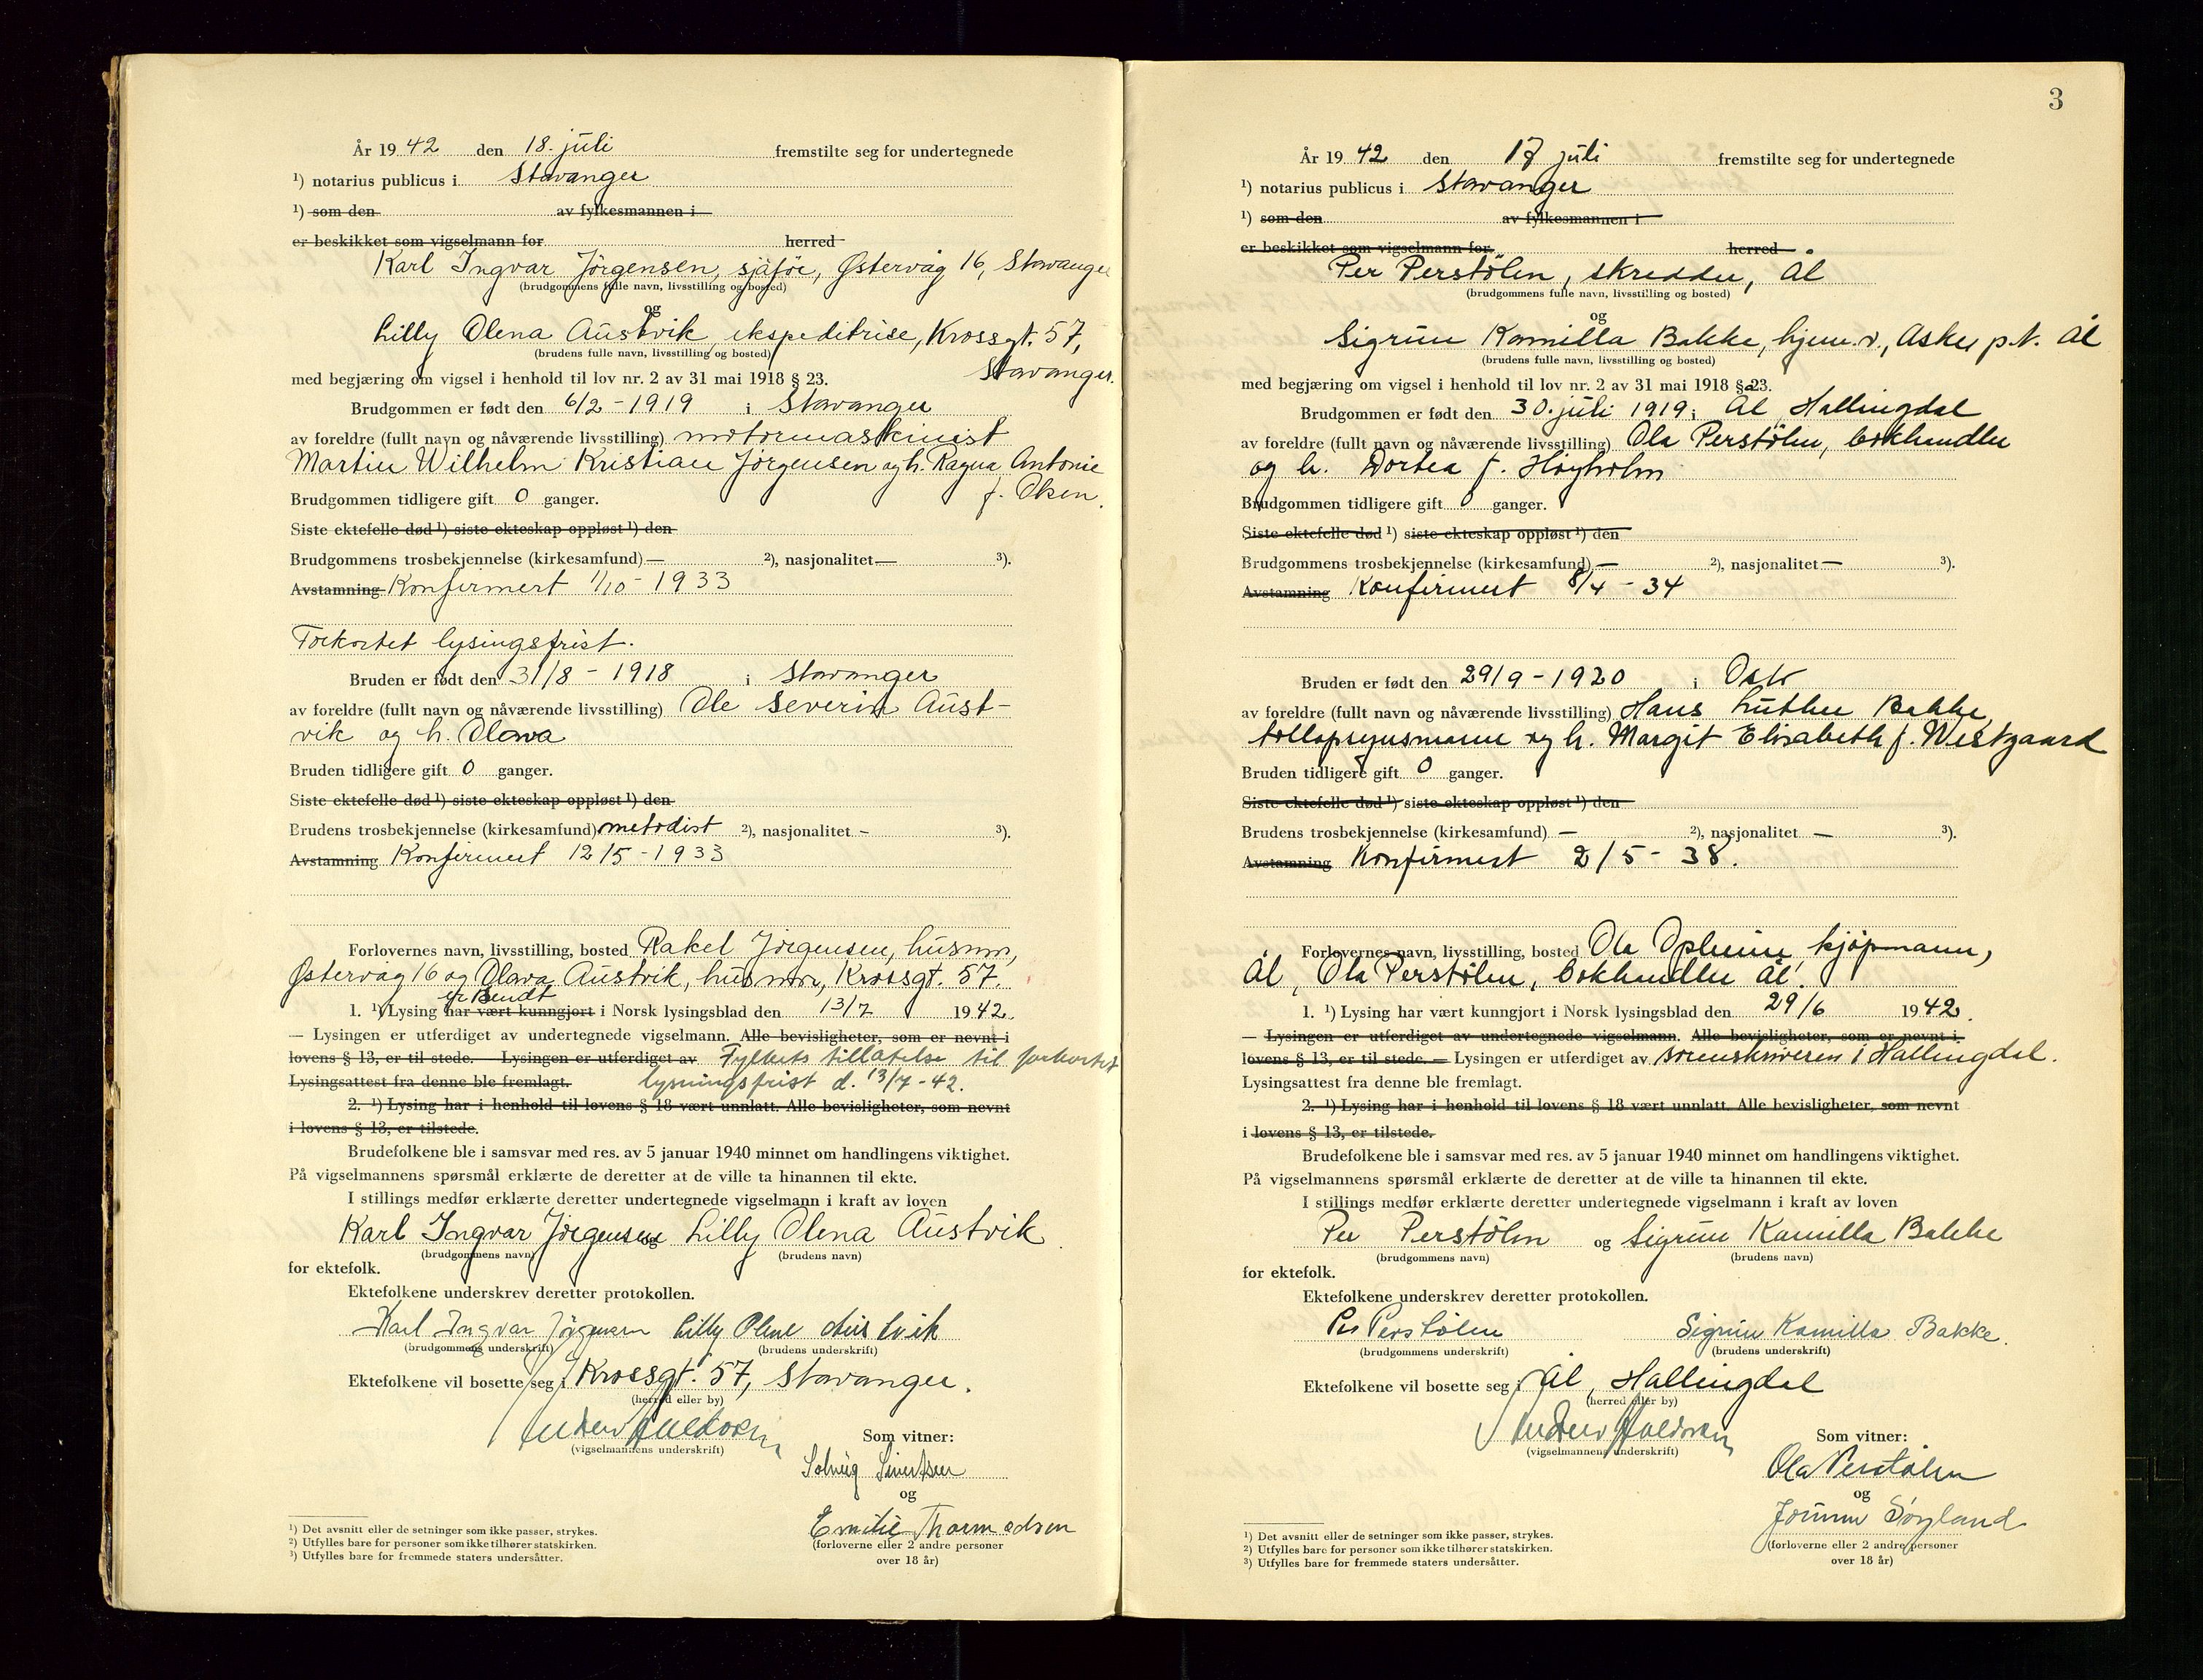 År 19 42 den 18. juli fremstilte seg for undertegnede
¹) notarius publicus i Stavanger
¹) som den av fylkesmannen i
er beskikket som vigselmann for herred
Karl Ingvar Jörgensen, sjåför, Østervåg 16, Stavanger
(brudgommens fulle navn, livsstilling og bosted)
og
Lilly Olena Austvik, ekspeditrise, Krossgt. 57,
(brudens fulle navn, livsstilling og bosted)
Stavanger.
med begjæring om vigsel i henhold til lov nr. 2 av 31 mai 1918 § 23.
Brudgommen er født den 6/2 - 1919 i Stavanger
av foreldre (fullt navn og nåværende livsstilling) motormaskinist
Martin Wilhelm Kristian Jörgensen og h. Ragna Antonie
f. Olsen.
Brudgommen tidligere gift 0 ganger.
Siste ektefelle død ¹) siste ekteskap oppløst ¹) den
Brudgommens trosbekjennelse (kirkesamfund) — ²), nasjonalitet — ³).
Avstamning Konfirmert 1/10 - 1933
Forkortet lysingsfrist.
Bruden er født den 31/8 - 1918 i Stavanger
av foreldre (fullt navn og nåværende livsstilling) Ole Severin Aust-
vik og h. Olava
Bruden tidligere gift 0 ganger.
Siste ektefelle død ¹) siste ekteskap oppløst ¹) den
Brudens trosbekjennelse (kirkesamfund) metodist ²), nasjonalitet - ³).
Avstamning Konfirmert 12/5 - 1933
Forlovernes navn, livsstilling, bosted Rakel Jörgensen, husmor,
Østervåg 16 og Olava Austvik, husmor, Krossgt. 57.
er sendt
1. ¹) Lysing har vært kunngjort i Norsk lysingsblad den 13/7 1942.
— Lysingen er utferdiget av undertegnede vigselmann. Alle bevisligheter, som er nevnt i
lovens § 13, er til stede. — Lysingen er utferdiget av Fylkets tillatelse til forkortet
Lysingsattest fra denne ble fremlagt. lysningsfrist d. 13/7-42.
2. ¹) Lysing har i henhold til lovens § 18 vært unnlatt. Alle bevisligheter, som nevnt
i lovens § 13, er tilstede.
Brudefolkene ble i samsvar med res. av 5 januar 1940 minnet om handlingens viktighet.
På vigselmannens spørsmål erklærte de deretter at de ville ta hinannen til ekte.
I stillings medfør erklærte deretter undertegnede vigselmann i kraft av loven
Karl Ingvar Jörgensen og Lilly Olena Austvik
(brudgommens navn) (brudens navn)
for ektefolk.
Ektefolkene underskrev deretter protokollen.
Karl Ingvar Jörgensen Lilly Olene Austvik
(brudgommens underskrift) (brudens underskrift)
Ektefolkene vil bosette seg i Krossgt. 57, Stavanger.
(herred eller by)
(vigselmannens underskrift)
Som vitner:
Solveig Sivertsen
og
Emilie Thormodsen
(forloverne eller 2 andre personer
over 18 år)
¹) Det avsnitt eller de setninger som ikke passer, strykes.
²) Utfylles bare for personer som ikke tilhører statskirken.
³) Utfylles bare for fremmede staters undersåtter.
3
År 19 42 den 17 juli fremstilte seg for undertegnede
¹) notarius publicus i Stavanger
¹) som den av fylkesmannen i
er beskikket som vigselmann for herred
Per Perstölen, skredder, Ål
(brudgommens fulle navn, livsstilling og bosted)
og
Sigrun Kamilla Bakke, hjem.v., Asker p.t. Ål
(brudens fulle navn, livsstilling og bosted)
med begjæring om vigsel i henhold til lov nr. 2 av 31 mai 1918 § 23.
Brudgommen er født den 30. juli 1919 i Ål Hallingdal
av foreldre (fullt navn og nåværende livsstilling) Ola Perstölen, bokhandler
og h. Dortea f. Höyholm
Brudgommen tidligere gift 0 ganger.
Siste ektefelle død ¹) siste ekteskap oppløst ¹) den
Brudgommens trosbekjennelse (kirkesamfund) — ²), nasjonalitet — ³).
Avstamning Konfirmert 8/4 - 34
Bruden er født den 29/9 - 1920 i Oslo
av foreldre (fullt navn og nåværende livsstilling) Hans Luther Bakke,
tollopsynsmann og h. Margit Elisabeth f. Westgaard
Bruden tidligere gift 0 ganger.
Siste ektefelle død ¹) siste ekteskap oppløst ¹) den
Brudens trosbekjennelse (kirkesamfund) — ²), nasjonalitet — ³).
Avstamning Konfirmert 2/5 - 38.
Forlovernes navn, livsstilling, bosted Ola Opheim, kjøpmann,
Ål, Ola Perstölen, bokhandler Ål.
1. ¹) Lysing har vært kunngjort i Norsk lysingsblad den 29/6 1942.
— Lysingen er utferdiget av undertegnede vigselmann. Alle bevisligheter, som er nevnt i
lovens § 13, er til stede. — Lysingen er utferdiget av sorenskriveren i Hallingdal.
Lysingsattest fra denne ble fremlagt.
2. ¹) Lysing har i henhold til lovens § 18 vært unnlatt. Alle bevisligheter, som nevnt
i lovens § 13, er tilstede.
Brudefolkene ble i samsvar med res. av 5 januar 1940 minnet om handlingens viktighet.
På vigselmannens spørsmål erklærte de deretter at de ville ta hinannen til ekte.
I stillings medfør erklærte deretter undertegnede vigselmann i kraft av loven
Per Perstölen og Sigrun Kamilla Bakke
(brudgommens navn) (brudens navn)
for ektefolk.
Ektefolkene underskrev deretter protokollen.
Per Perstölen Sigrun Kamilla Bakke.
(brudgommens underskrift) (brudens underskrift)
Ektefolkene vil bosette seg i Ål, Hallingdal
(herred eller by)
(vigselmannens underskrift)
Som vitner:
Ola Perstölen
og
Jorunn Söyland
(forloverne eller 2 andre personer
over 18 år)
¹) Det avsnitt eller de setninger som ikke passer, strykes.
²) Utfylles bare for personer som ikke tilhører statskirken.
³) Utfylles bare for fremmede staters undersåtter.